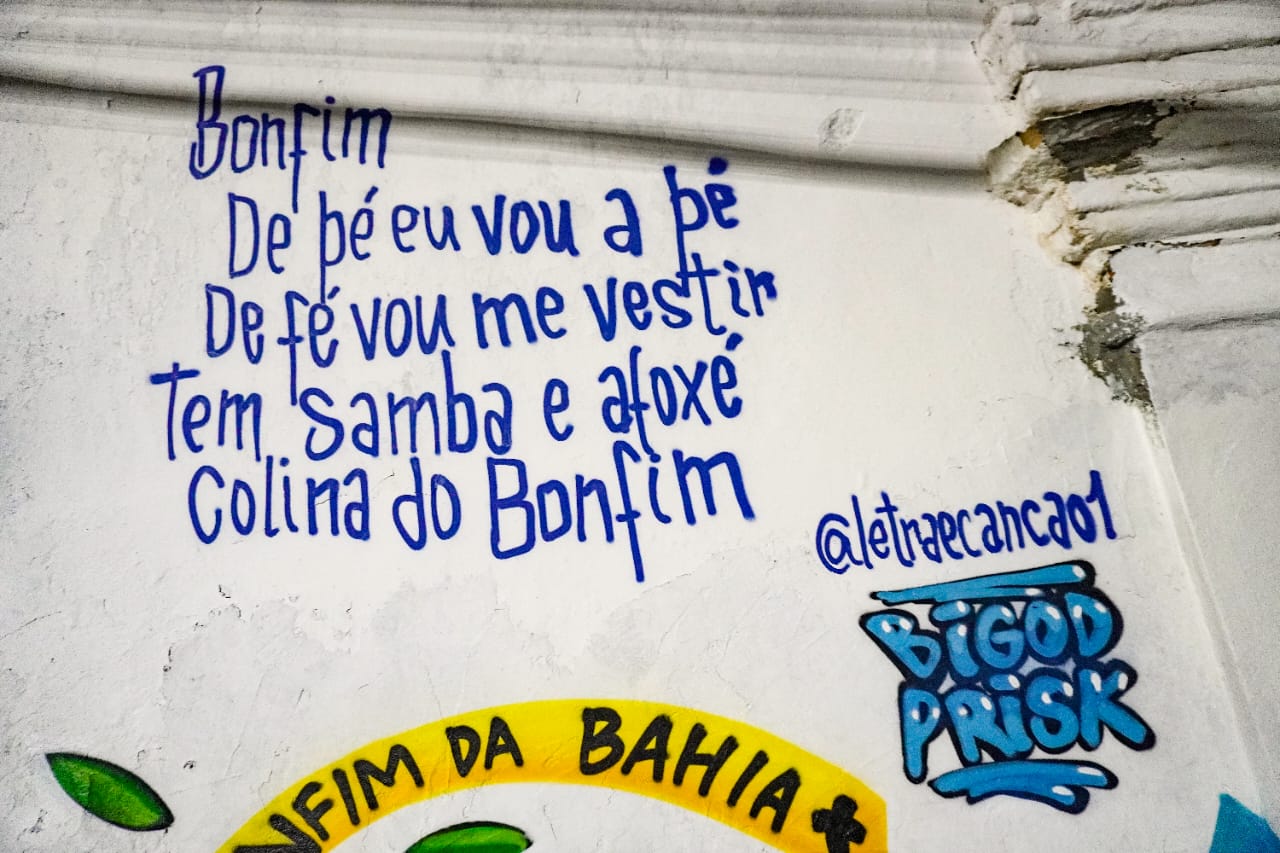 Bonfim
De pé eu vou a pé
De fé vou me vestir
Tem samba e afoxé
Colina do Bonfim
@letraecancao1
BIGOD
PRISK
NFIM DA BAHIA +